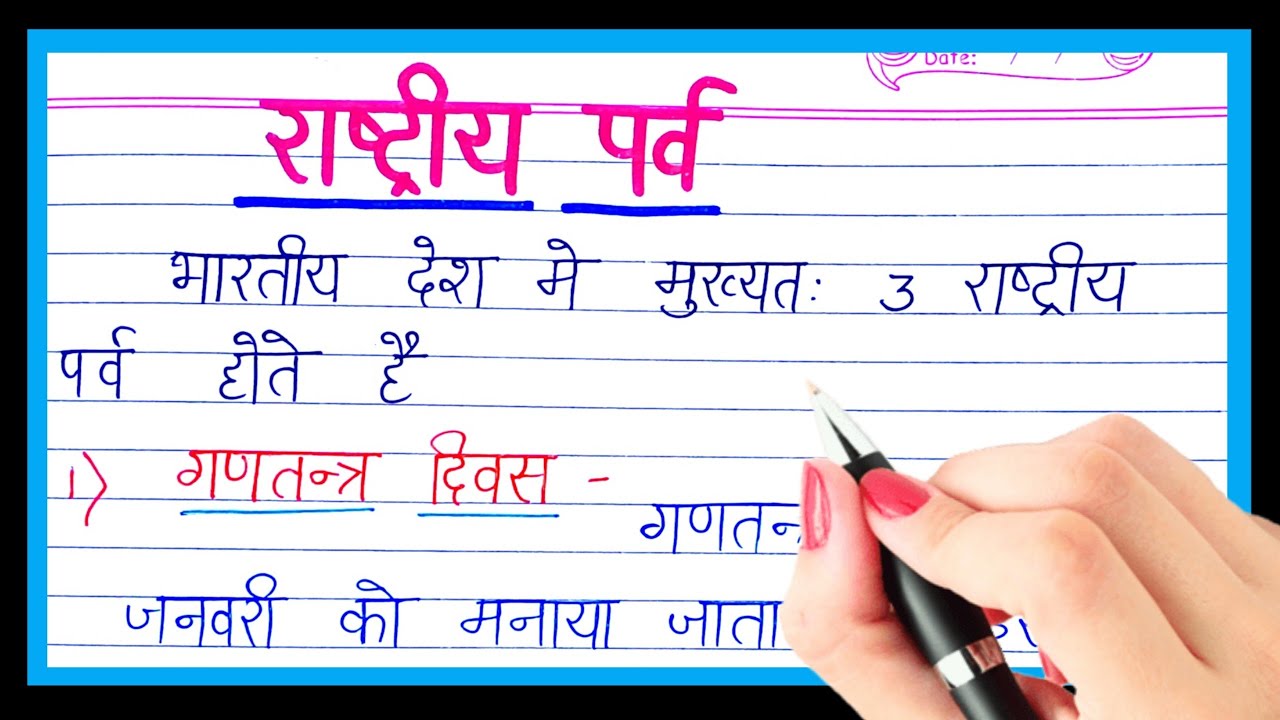 Date: / /
राष्ट्रीय पर्व
भारतीय देश मे मुख्यतः 3 राष्ट्रीय
पर्व होते है
1) गणतन्त्र दिवस -
जनवरी को मनाया जाता